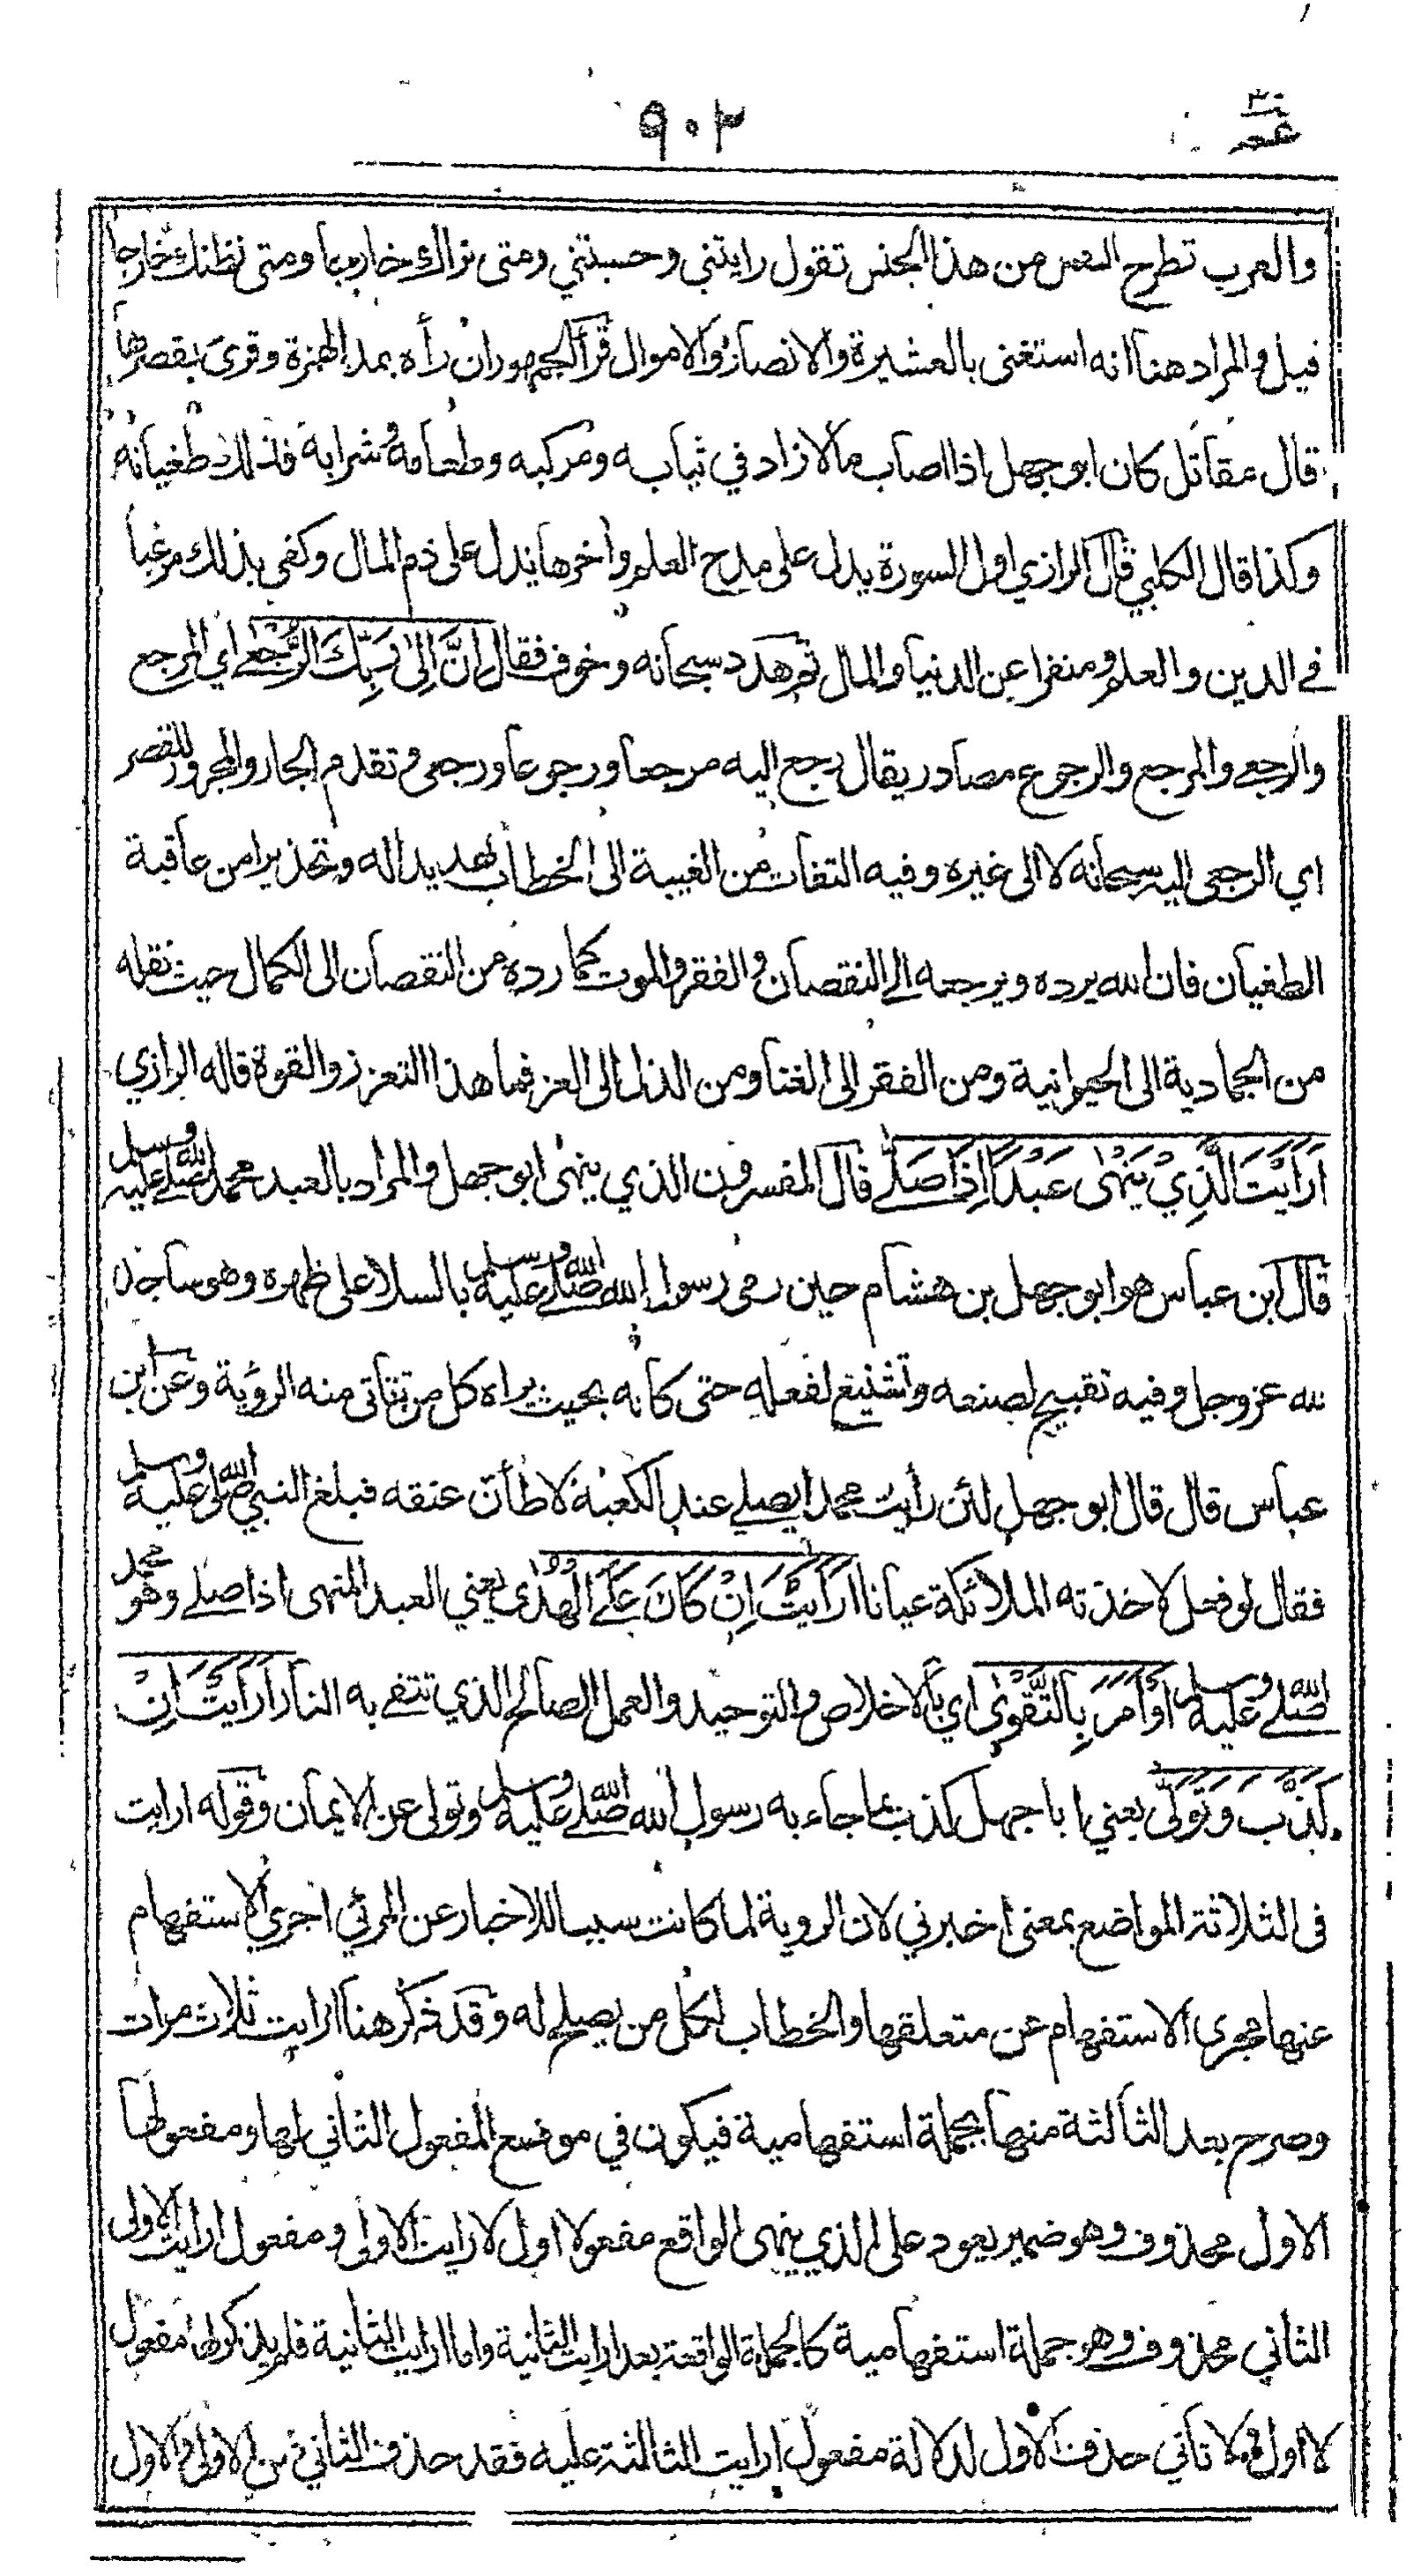 عمّ ٣٠
٩٠٢
والعرب تطرح النفس من هذا الجنس تقول رايتني وحسبتني ومتى نراك خارجا ومتى نظنك خارجا
قيل والمراد هنا انه استغنى بالعشيرة والانصار والاموال قرأ الجمهور ان رأه بمد الهمزة وقرئ بقصرها
قال مقاتل كان ابو جهل اذا اصاب مالا زاد في ثيابه ومركبه وطعامه وشرابه فذلك طغيانه
وكذا قال الكلبي قال الرازي اول السورة يدل على مدح العلم واخرها يدل على ذم المال وكفى بذلك مرغبا
في الدين والعلم ومنفرا عن الدنيا والمال ثم هدد سبحانه وخوف فقال اِنَّ اِلٰى رَبِّكَ الرُّجْعٰى اي المرجع
والرجعى والمرجع والرجوع مصادر يقال رجع اليه مرجعا ورجوعا ورجعى وتقدم الجار والمجرور للقصر
اي الرجعى اليه سبحانه لا الى غيره وفيه التفات من الغيبة الى الخطاب تهديدا له وتحذيرا من عاقبة
الطغيان فان الله يرده ويرجعه الى النقصان والفقر والموت كما رده من النقصان الى الكمال حيث نقله
من الجمادية الى الحيوانية ومن الفقر الى الغنا ومن الذل الى العز فما هذا التعزز والقوة قاله الرازي
اَرَاَيْتَ الَّذِيْ يَنْهٰى عَبْدًا اِذَا صَلّٰى قال المفسرون الذي ينهى ابو جهل والمراد بالعبد محمد صلى الله عليه وسلم
قال ابن عباس هو ابو جهل بن هشام حين رمى رسول الله صلى الله عليه وسلم بالسلا على ظهره وهو ساجد
لله عز وجل وفيه تقبيح لصنعه وتشنيع لفعله حتى كانه بحيث يراه كل من تتاتى منه الرؤية وعن ابن
عباس قال قال ابو جهل لئن رأيت محمدا يصلي عند الكعبة لاطأن عنقه فبلغ النبي صلى الله عليه وسلم
فقال لو فعل لاخذته الملائكة عيانا اَرَاَيْتَ اِنْ كَانَ عَلَى الْهُدٰى يعني العبد المنهى اذا صلى وهو محمد
صلى الله عليه وسلم اَوْ اَمَرَ بِالتَّقْوٰى اي بالاخلاص والتوحيد والعمل الصالح الذي تتقى به النار اَرَاَيْتَ اِنْ
كَذَّبَ وَتَوَلّٰى يعني ابا جهل كذب بما جاء به رسول الله صلى الله عليه وسلم وتولى عن الايمان وقوله ارايت
في الثلاثة المواضع بمعنى اخبرني لان الروية لما كانت سببا للاخبار عن المرئي اجري الاستفهام
عنها مجرى الاستفهام عن متعلقها والخطاب لكل من يصلح له وقد ذكر هنا ارايت ثلاث مرات
وصرح بعد الثالثة منها بجملة استفهامية فيكون في موضع المفعول الثاني لها ومفعولها
الاول محذوف وهو ضمير يعود على الذي ينهى الواقع مفعولا اول لارايت الاولى ومفعول ارايت الاولى
الثاني محذوف وهو جملة استفهامية كالجملة الواقعة بعد ارايت الثانية واما ارايت الثانية فلم يذكر لها مفعول
لا اول ولا ثاني حذف الاول لدلالة مفعول ارايت الثالثة عليه فقد حذف الثاني من الاولى والاول